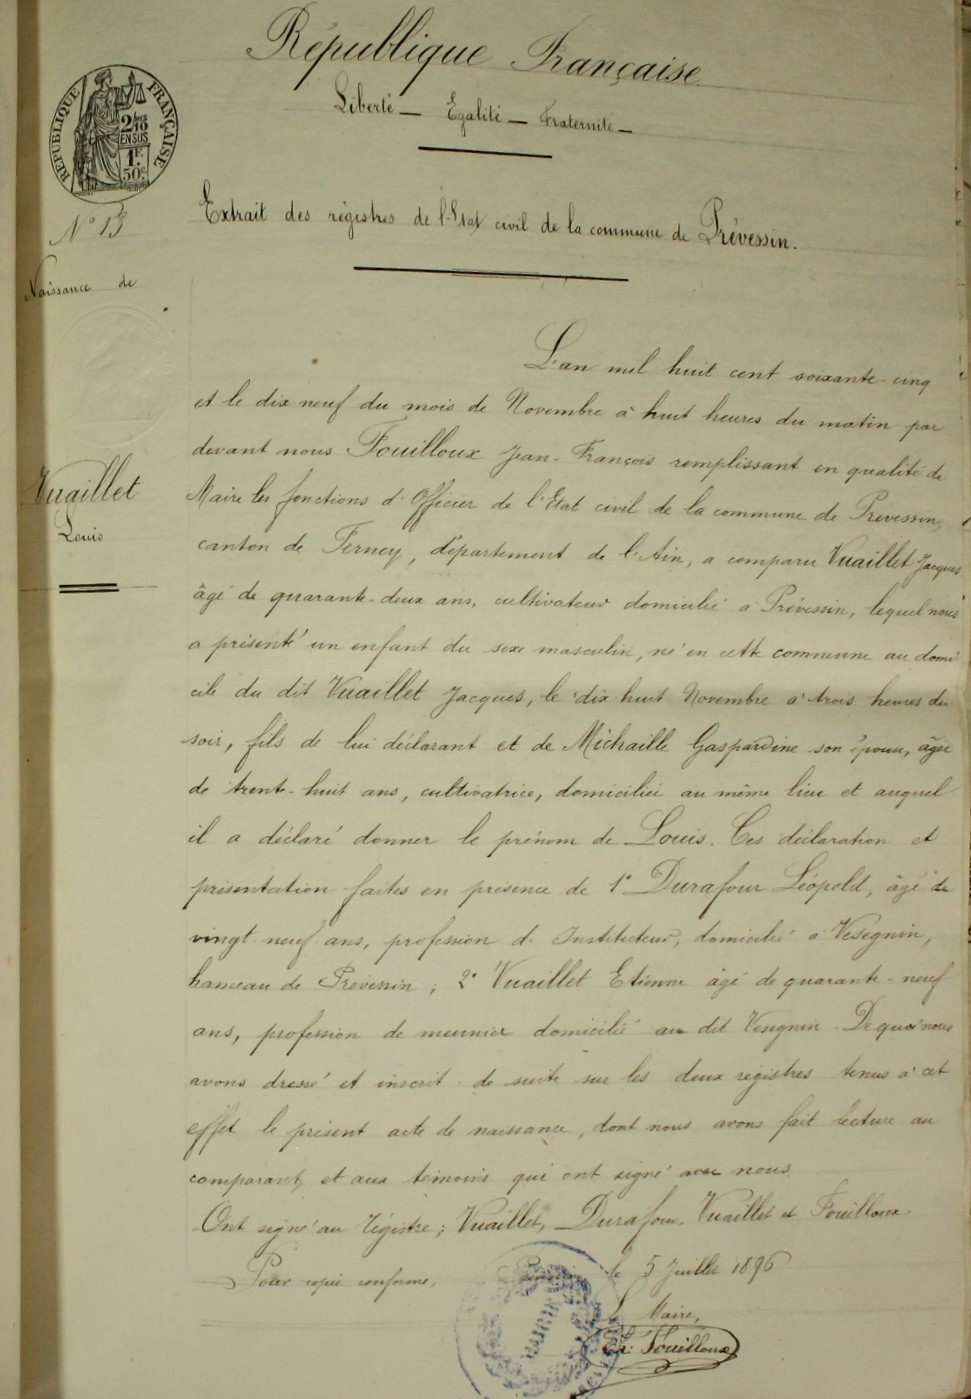 République Française
Liberté — Egalité — Fraternité —
RÉPUBLIQUE FRANÇAISE
2/10
EN SUS
1F.
50c.
N° 13
Extrait des régistres de l'Etat civil de la commune de Prévessin.
Naissance de
Vuaillet
Louis
L'an mil huit cent soixante-cinq
et le dix neuf du mois de Novembre à huit heures du matin par
devant nous Fouilloux Jean-François remplissant en qualité de
Maire les fonctions d'Officier de l'Etat civil de la commune de Prevessin,
canton de Ferney, département de l'Ain, a comparu Vuaillet Jacques
âgé de quarante-deux ans, cultivateur domicilié à Prévessin, lequel nous
a présenté un enfant du sexe masculin, né en cette commune au domi
cile du dit Vuaillet Jacques, le dix huit Novembre à trois heures du
soir, fils de lui déclarant et de Michaille Gaspardine son épouse, âgée
de trente-huit ans, cultivatrice, domiciliée au même lieu et auquel
il a déclaré donner le prénom de Louis. Ces déclaration et
présentation faites en présence de 1° Durafour Léopold, âgé de
vingt neuf ans, profession d'Instituteur, domicilié à Vésegnin,
hameau de Prévessin ; 2° Vuaillet Etienne âgé de quarante-neuf
ans, profession de meunier domicilié au dit Vésegnin. De quoi nous
avons dressé et inscrit de suite sur les deux régistres tenus à cet
effet le présent acte de naissance, dont nous avons fait lecture au
comparant, et aux témoins qui ont signé avec nous.
Ont signé au régistre ; Vuaillet, Durafour, Vuaillet et Fouilloux
Pour copie conforme, le 5 Juillet 1896
Le Maire,
Fouilloux
MAIRIE